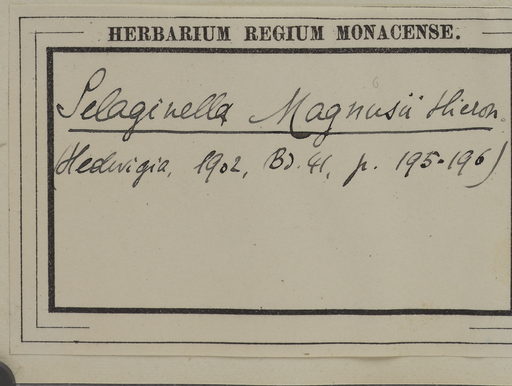 HERBARIUM REGIUM MONACENSE.
Selaginella Magnusii Hieron.
(Hedwigia, 1902, Bd. 41, p. 195-196)